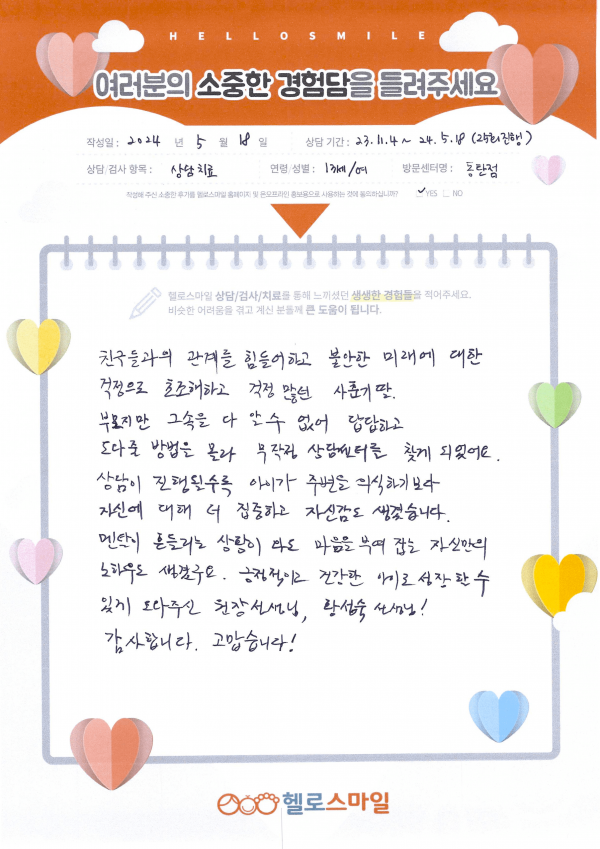 HELLOSMILE
여러분의 소중한 경험담을 들려주세요
작성일 : 2024 년 5 월 18 일 상담 기간 : 23.11.4 ~ 24.5.18 (25회진행)
상담/검사 항목 : 상담치료 연령/성별 : 13세/여 방문센터명 : 동탄점
작성해 주신 소중한 후기를 헬로스마일 홈페이지 및 온오프라인 홍보용으로 사용하는 것에 동의하십니까? YES NO
헬로스마일 상담/검사/치료를 통해 느끼셨던 생생한 경험들을 적어주세요.
비슷한 어려움을 겪고 계신 분들께 큰 도움이 됩니다.
친구들과의 관계를 힘들어하고 불안한 미래에 대한
걱정으로 초조해하고 걱정 많던 사춘기 딸.
부모지만 그속을 다 알 수 없어 답답하고
도와줄 방법을 몰라 무작정 상담센터를 찾게 되었어요.
상담이 진행될수록 아이가 주변을 의식하기보다
자신에 대해 더 집중하고 자신감도 생겼습니다.
멘탈이 흔들리는 상황이 와도 마음을 부여 잡는 자신만의
노하우도 생겼구요. 긍정적이고 건강한 아이로 성장할 수
있게 도와주신 원장선생님, 황성숙 선생님!
감사합니다. 고맙습니다!
헬로스마일